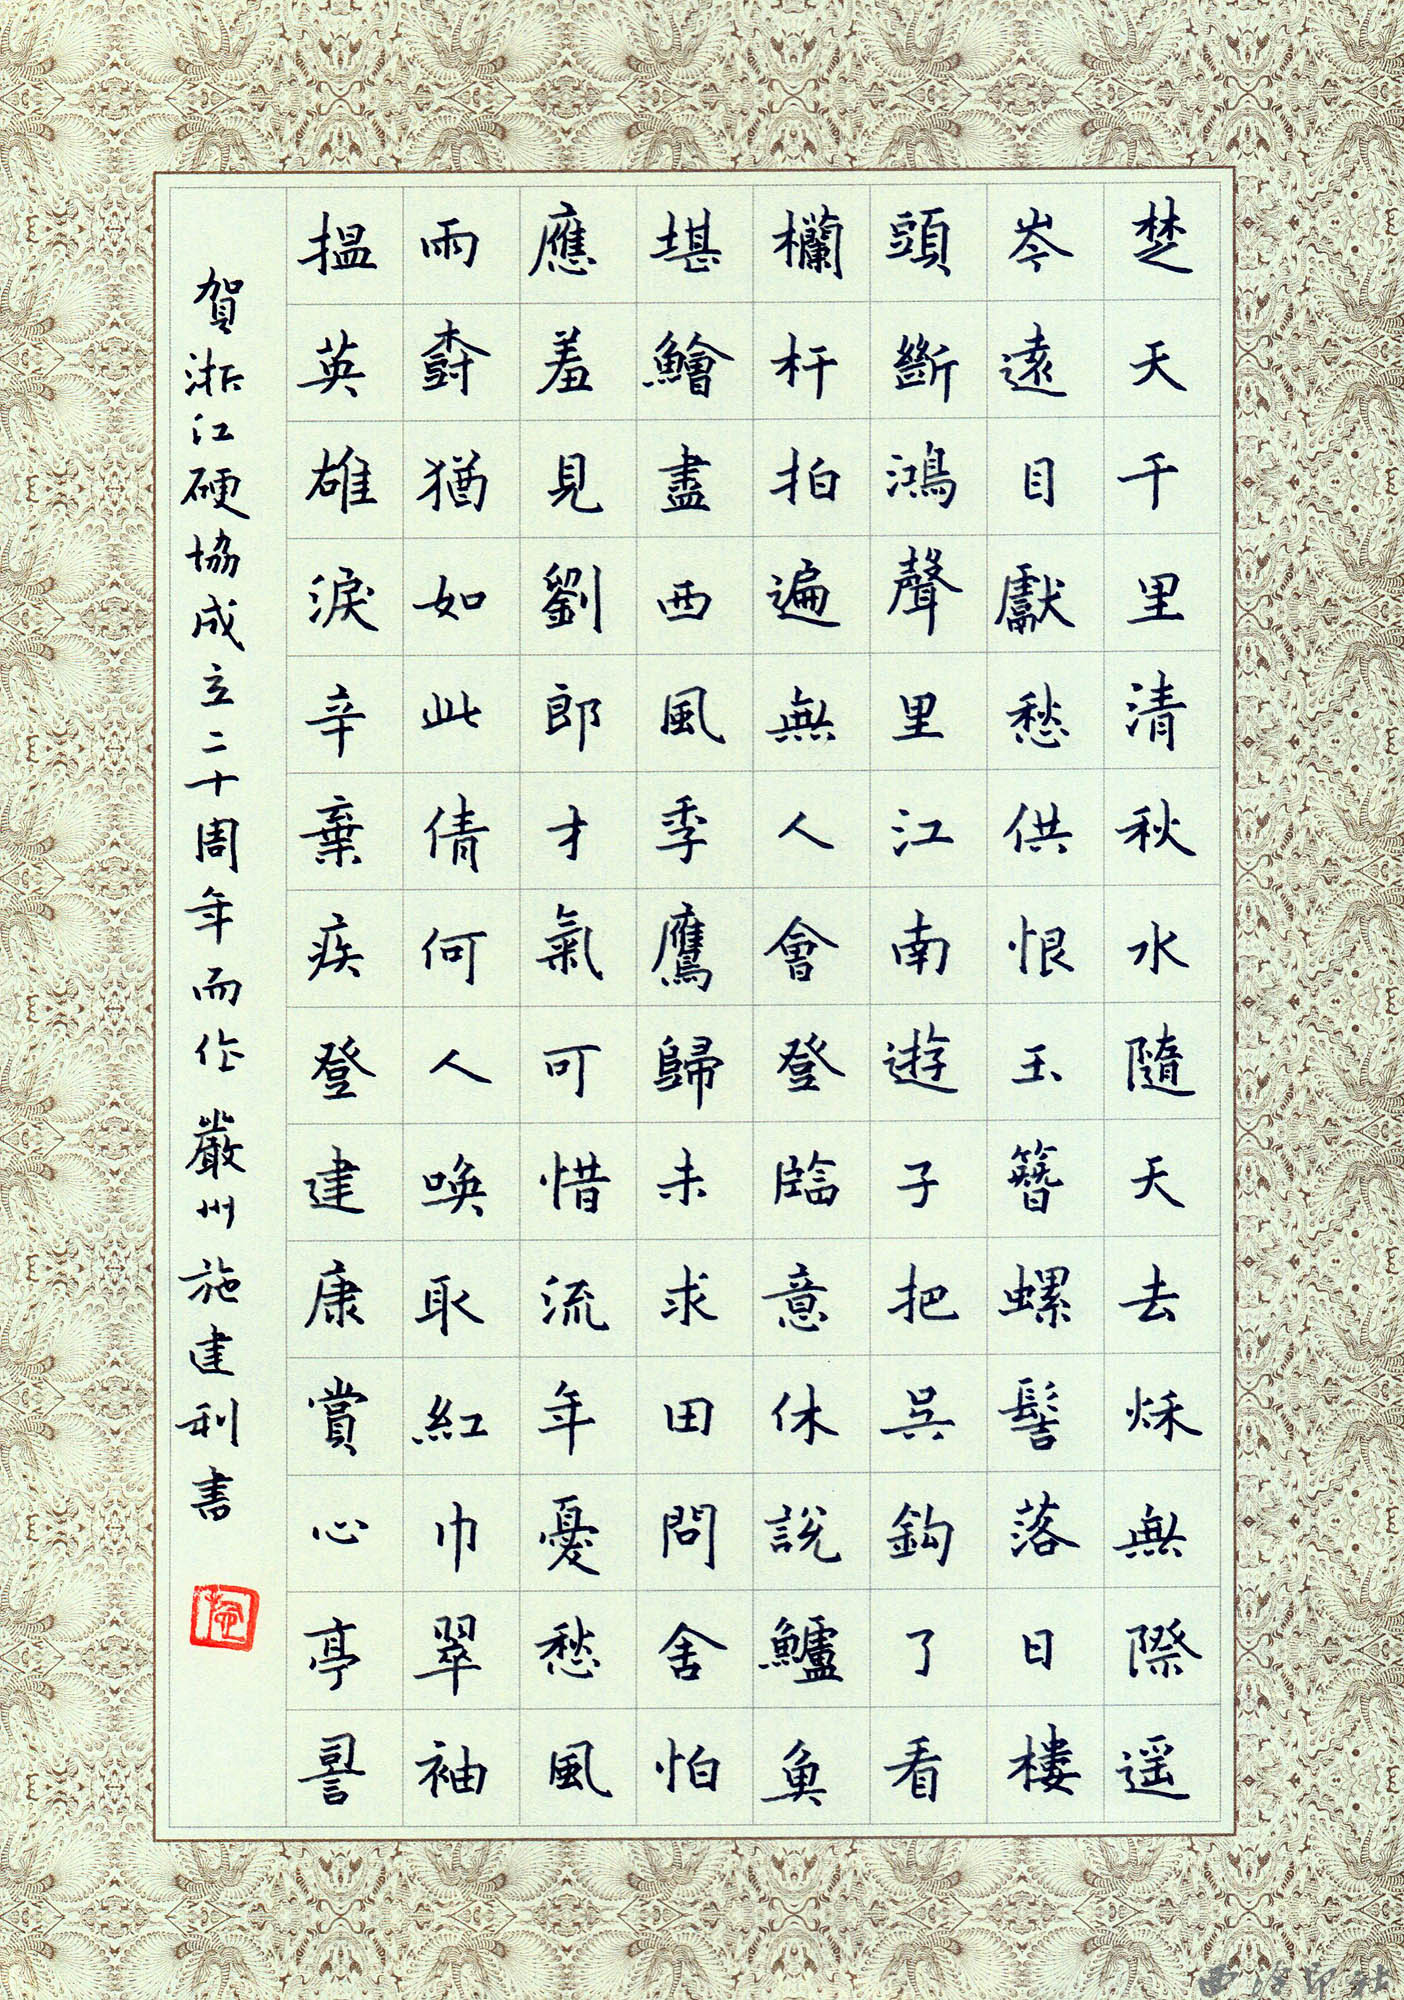 楚天千里清秋水隨天去秌無際遥
岑遠目獻愁供恨玉簪螺髻落日樓
頭斷鴻聲里江南遊子把吳鈎了看
欄杆拍遍無人會登臨意休說鱸魚
堪鱠盡西風季鷹歸未求田問舍怕
應羞見劉郎才氣可惜流年憂愁風
雨尌猶如此倩何人喚取紅巾翠袖
揾英雄淚辛棄疾登建康賞心亭詈
賀浙江硬協成立二十周年而作嚴州施建利書
西泠印社